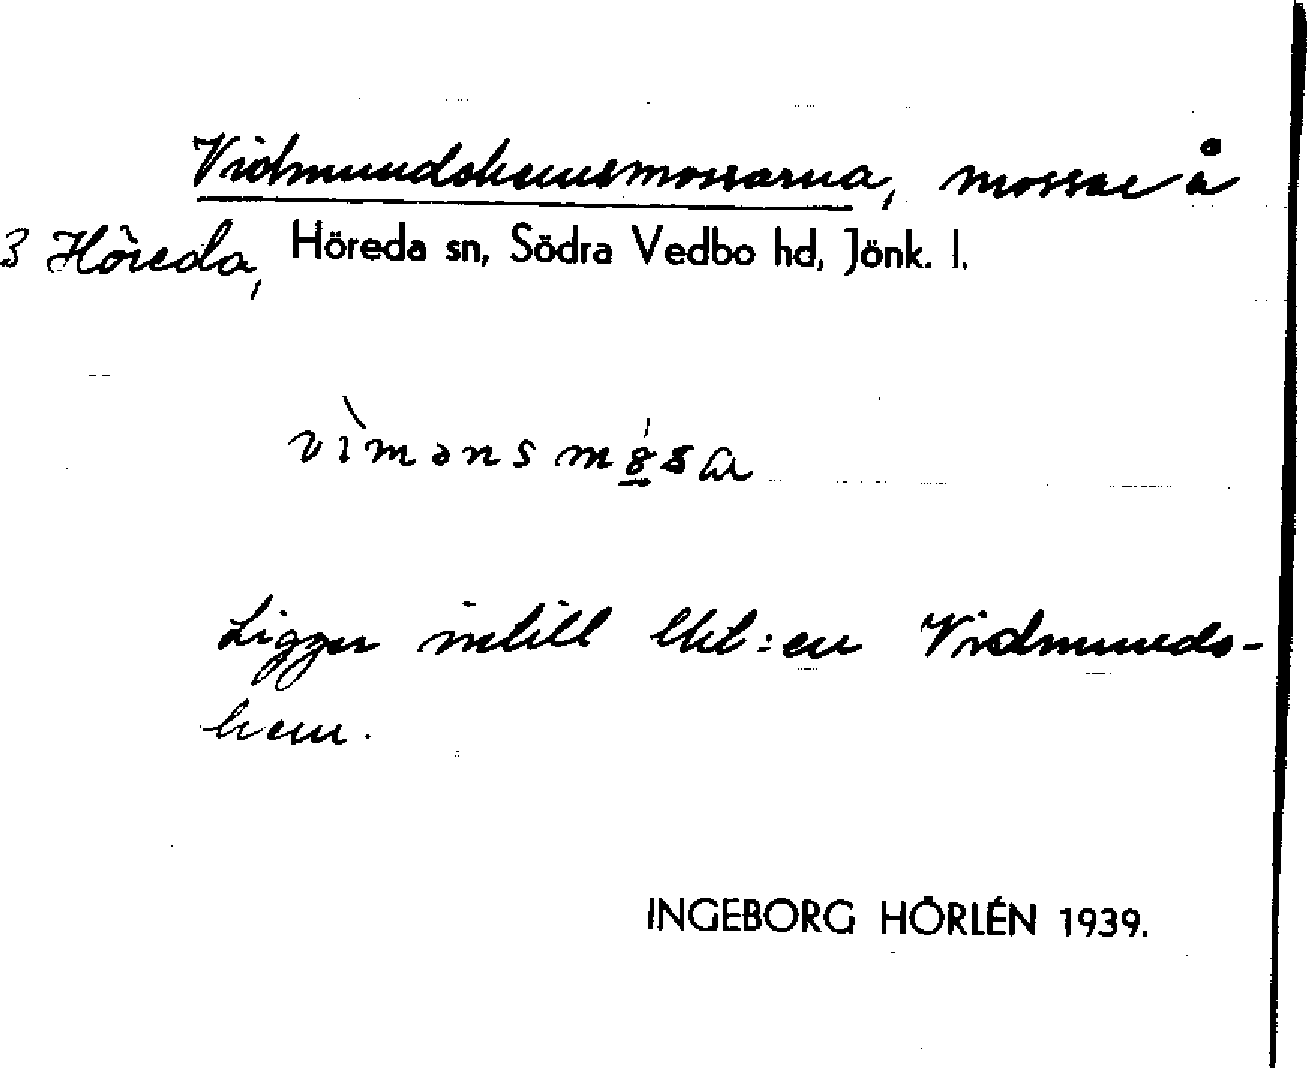 Vidmundshemsmossarna, mossar å
3 Höreda, Höreda sn, Södra Vedbo hd, Jönk. l.
vìmənsmósa
Ligger intill lht:en Vidmunds-
hem.
INGEBORG HÖRLÉN 1939.